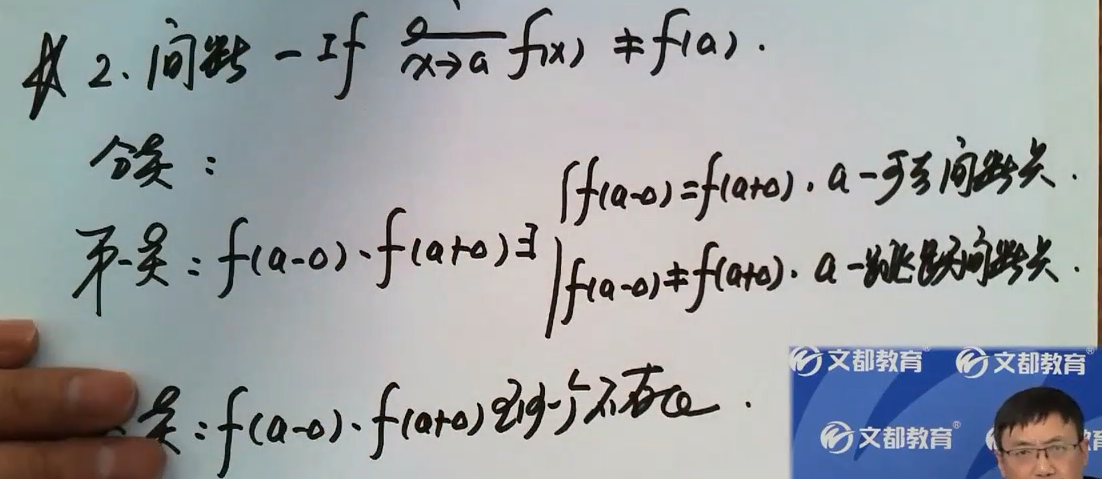 2. 间断 — If lim x→a f(x) ≠ f(a).
分类:
第一类: f(a-0)、f(a+0)∃ { f(a-0)=f(a+0). a—可去间断点.
f(a-0)≠f(a+0). a—跳跃间断点.
类: f(a-0)、f(a+0)至少一个不存在.
文都教育® 文都教育®
文都教育®